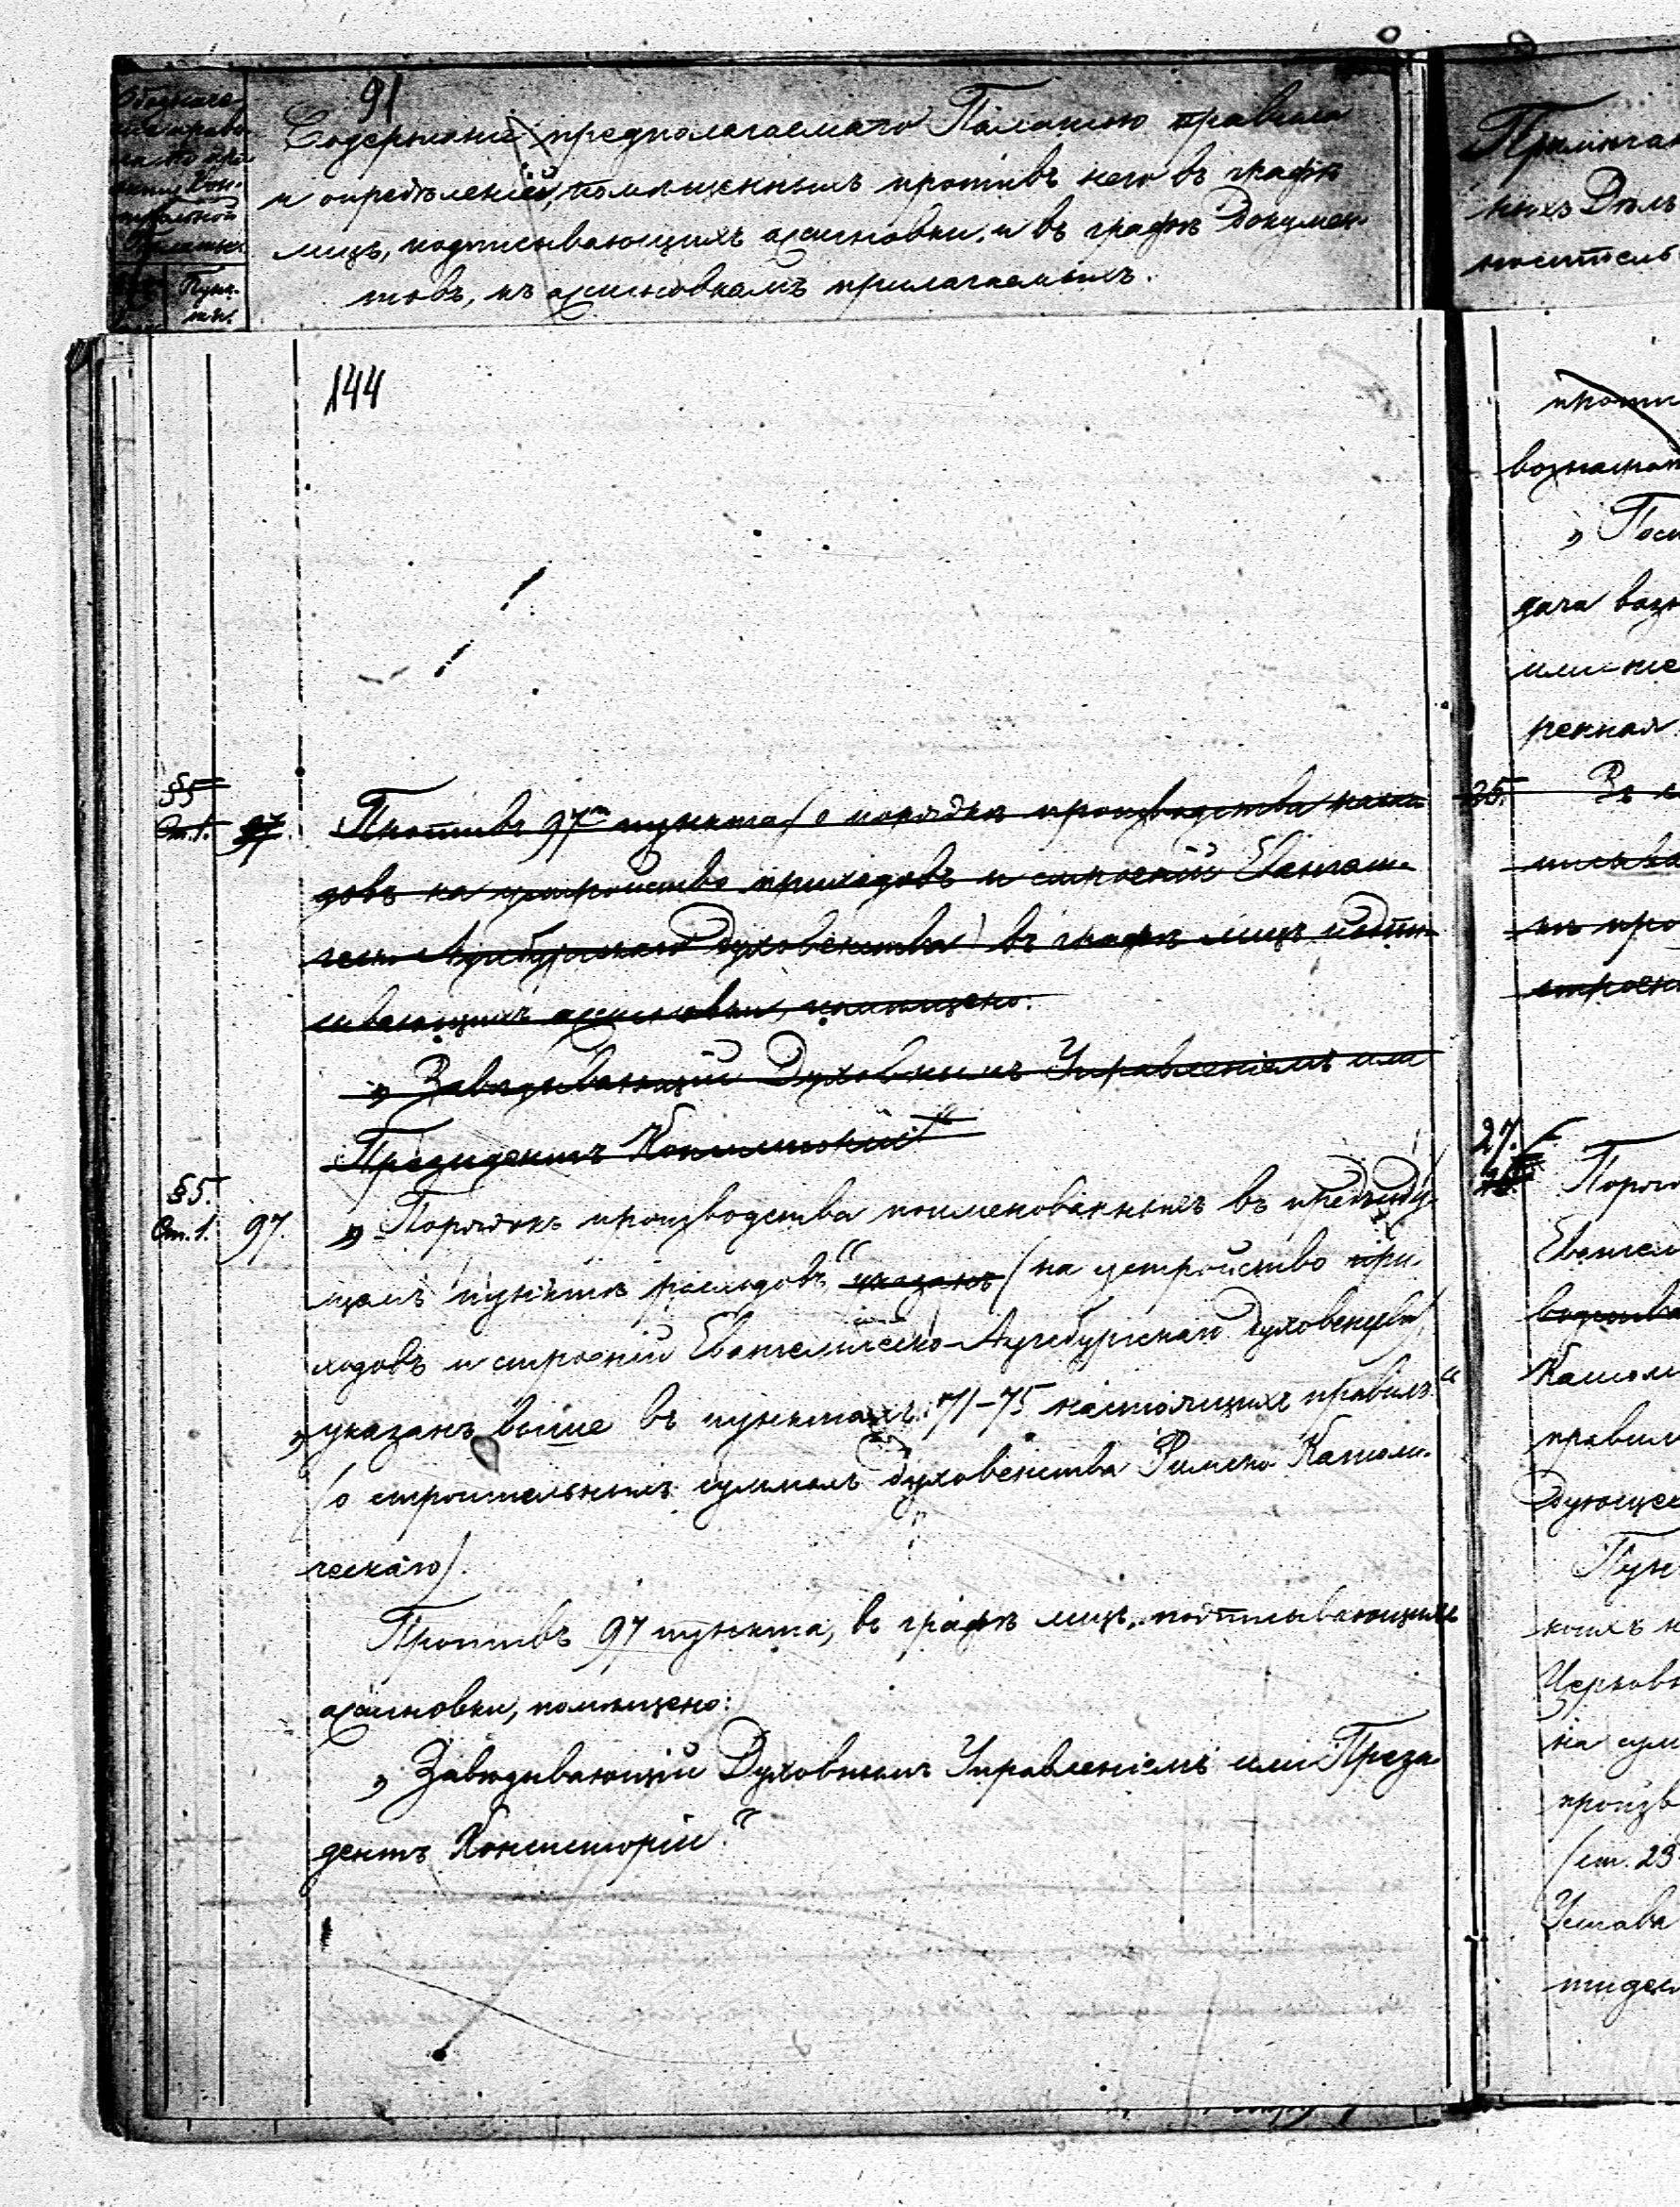 91
Обозначе-
ніе прави-
Кон-
трольной
Палаты.
Пунк-
ты.
Содержаніе предполагаемаго Палатою правила
и опредѣленій, помѣщенныхъ противъ него въ графѣ
лицъ, подписывающихъ ассигновки, и въ графѣ докумен-
товъ, къ ассигновкамъ прилагаемыхъ.
144
§5
Ст. 1. 97
Противъ 97го пункта (о порядкѣ производства расхо-
довъ на устройство приходовъ и строеній Евангели-
ческо-Аугсбургскаго духовенства) въ графѣ лицъ подпи-
сывающихъ ассигновки, помѣщено:
„Завѣдывающій Духовнымъ Управленіемъ или
Президентъ Консисторіи“
§5.
Ст. 1. 97.
„Порядокъ производства поименованныхъ въ предъиду-
щемъ пунктѣ расходовъ“ указанъ (на устройство при-
ходовъ и строеній Евангелическо-Аугсбургскаго духовенства)
„указанъ выше въ пунктахъ 71-75 настоящихъ правилъ“
(о строительныхъ суммахъ духовенства Римско Католи-
ческаго).
Противъ 97 пункта, въ графѣ лицъ, подписывающихъ
ассигновки, помѣщено:
„Завѣдывающій Духовнымъ Управленіемъ или Прези
дентъ Консисторіи.“
Примѣчан
ныхъ Дѣлъ
носитель
проти
возмагаю
„Посл
дача
или не
ренная
26. Въ
строен
27. Поряд
Евангел
водства
Католи
правил
дующе
Пун
коихъ н
Церковн
на сум
произв
(ст. 23
Устава